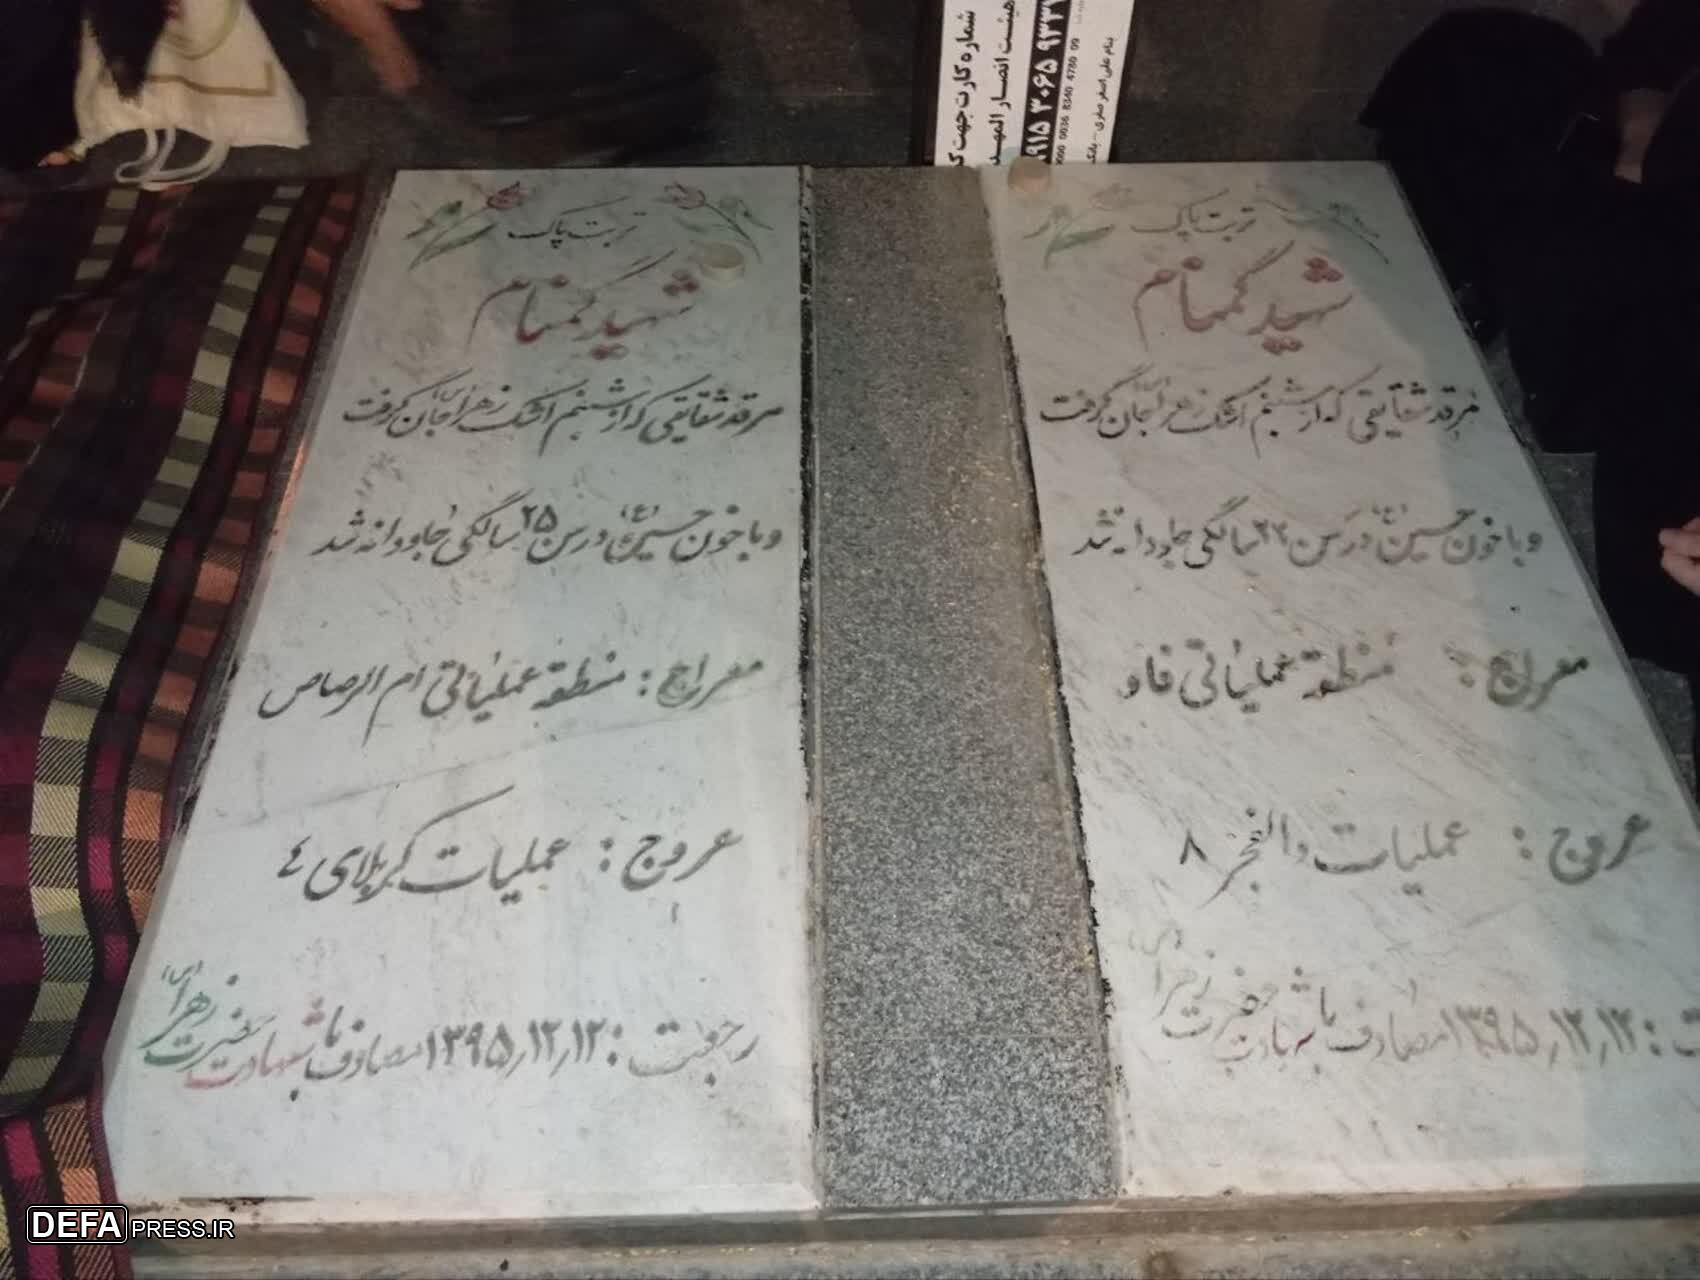 شماره کارت جهت ک
هیئت انصار المهد
۹۱۵ ۳۰۶۵ ۹۳۳۷
0036 8340 4780 09
بنام علی اصغر صفری - بانک
تربت پاک
شهید گمنام
مرقد شقایقی که از شبنم اشک زهرا (س) جان گرفت
و با خون حسین (ع) در سن ۲۲ سالگی جاودانه شد
معراج : منطقه عملیاتی فاو
عروج : عملیات والفجر ۸
ت : ۱۳۹۵/۱۲/۱۲ مصادف با شهادت حضرت زهرا (س)
تربت پاک
شهید گمنام
مرقد شقایقی که از شبنم اشک زهرا (س) جان گرفت
و با خون حسین (ع) در سن ۲۵ سالگی جاودانه شد
معراج : منطقه عملیاتی ام الرصاص
عروج : عملیات کربلای ٤
رجعت : ۱۳۹۵/۱۲/۱۲ مصادف با شهادت حضرت زهرا (س)
DEFAPRESS.IR